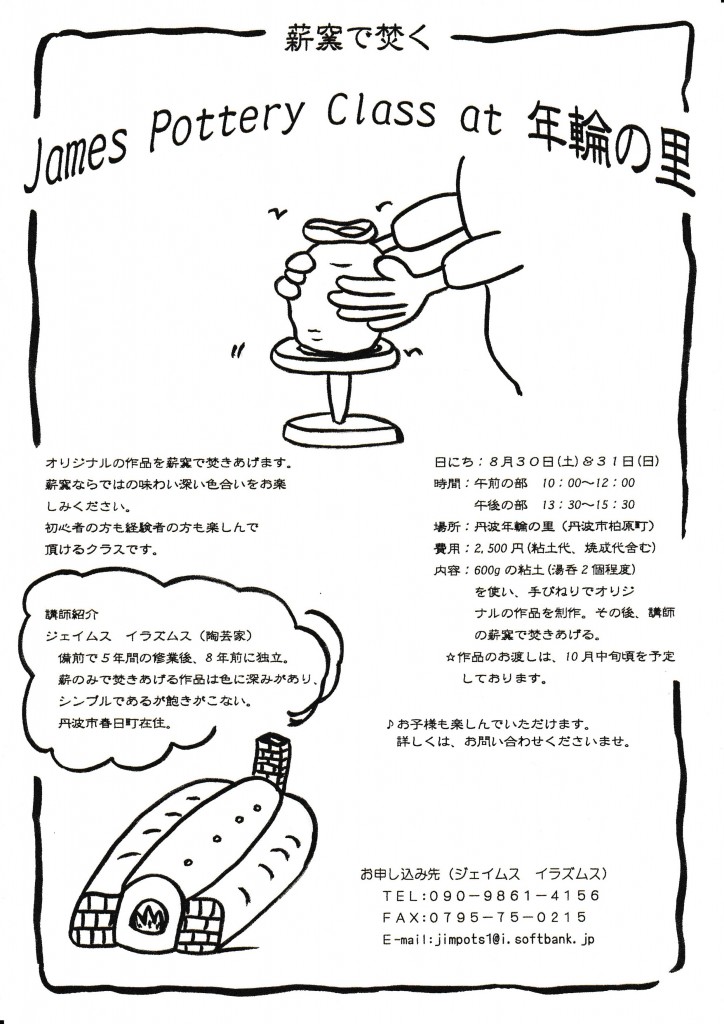 薪窯で焚く
James Pottery Class at 年輪の里
オリジナルの作品を薪窯で焚きあげます。
薪窯ならではの味わい深い色合いをお楽
しみください。
初心者の方も経験者の方も楽しんで
頂けるクラスです。
日にち：８月３０日(土)＆３１日(日)
時間：午前の部　10：00～12：00
午後の部　13：30～15：30
場所：丹波年輪の里（丹波市柏原町）
費用：2,500円(粘土代、焼成代含む)
内容：600gの粘土(湯呑２個程度)
を使い、手びねりでオリジ
ナルの作品を制作。その後、講師
の薪窯で焚きあげる。
☆作品のお渡しは、10月中旬頃を予定
しております。
講師紹介
ジェイムス　イラズムス（陶芸家）
備前で５年間の修業後、８年前に独立。
薪のみで焚きあげる作品は色に深みがあり、
シンプルであるが飽きがこない。
丹波市春日町在住。
♪お子様も楽しんでいただけます。
詳しくは、お問い合わせくださいませ。
お申し込み先（ジェイムス　イラズムス）
ＴＥＬ：０９０－９８６１－４１５６
ＦＡＸ：０７９５－７５－０２１５
E-mail：jimpots1@i.softbank.jp